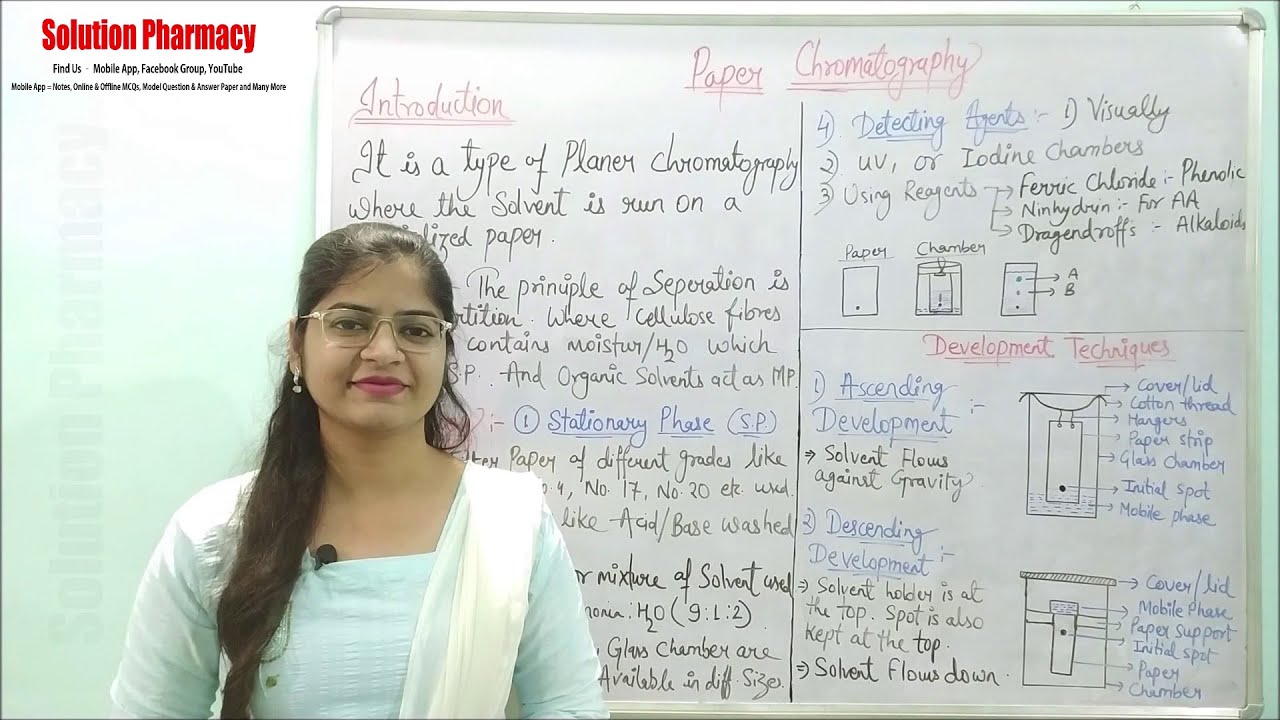 Solution Pharmacy
Find Us - Mobile App, Facebook Group, YouTube
Mobile App = Notes, Online & Offline MCQs, Model Question & Answer Paper and Many More
Solution Pharmacy
Paper Chromatography
Introduction
It is a type of Planer Chromatography
where the Solvent is run on a
paper.
The principle of Seperation is
Where cellulose fibres
contains moistur/H2O which
S.P. And Organic Solvents act as MP.
:- ① Stationary Phase (S.P.)
Paper of different grades like
No.4, No. 17, No. 20 etc. used.
like Acid/Base washed
mixture of Solvent used
H2O (9:1:2)
Glass Chamber are
Available in diff. Sizes.
4) Detecting Agents :- 1) Visually
2) UV, or Iodine Chambers
3) Using Reagents → Ferric Chloride :- Phenolic
→ Ninhydrin :- For AA
→ Dragendroffs :- Alkaloids
Paper Chamber
A
B
Development Techniques
1) Ascending
Development :-
⇒ Solvent Flows
against Gravity
Cover/lid
Cotton thread
Hangers
Paper strip
Glass chamber
Initial spot
Mobile phase
2) Descending
Development :-
⇒ Solvent holder is at
the top. Spot is also
kept at the top.
⇒ Solvent Flows down.
Cover/lid
Mobile Phase
Paper Support
Initial spot
Paper
Chamber